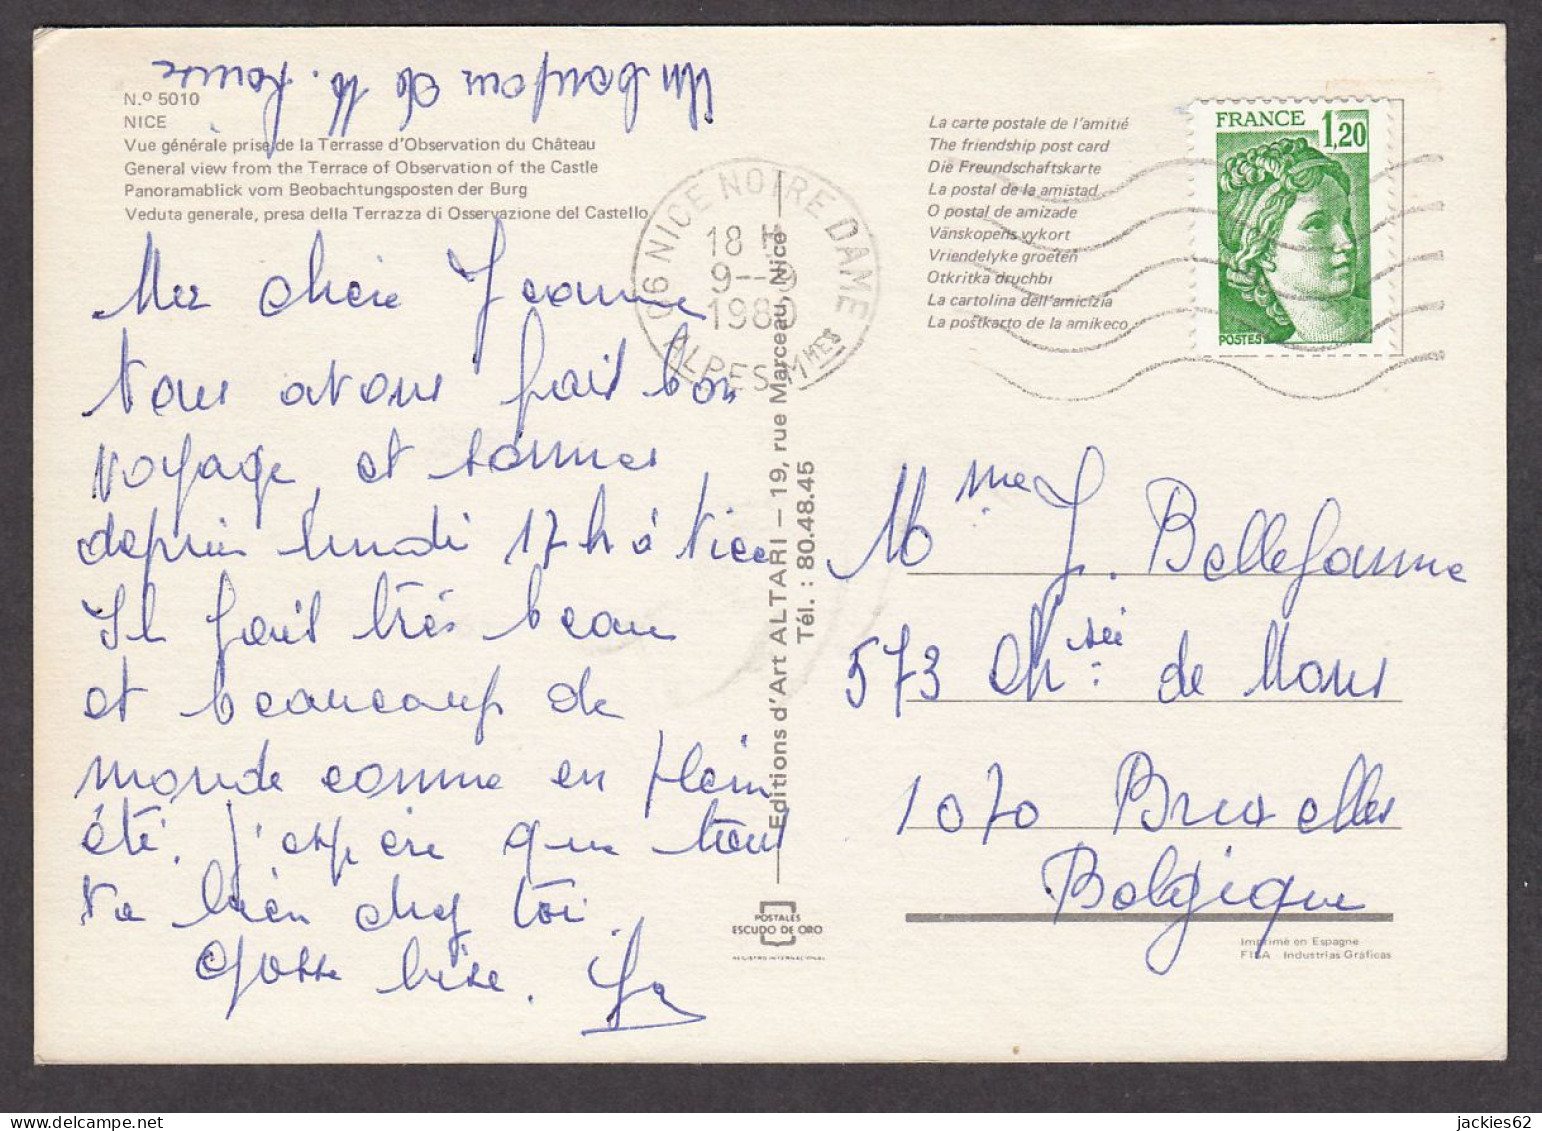 Un bonjour de M. Louise
N.º 5010
NICE
Vue générale prise de la Terrasse d'Observation du Château
General view from the Terrace of Observation of the Castle
Panoramablick vom Beobachtungsposten der Burg
Veduta generale, presa della Terrazza di Osservazione del Castello
Ma chère Jeanne
Nous avons fait bon
voyage, et sommes
depuis lundi 17 h à Nice
Il fait très beau
et beaucoup de
monde comme en plein
été. J'espère que tout
va bien chez toi.
Grosse bise.
06 NICE NOTRE DAME
18 H
9--9
1980
ALPES-Mmes
Editions d'Art ALTARI – 19, rue Marceau, Nice
Tél. : 80.48.45
POSTALES
ESCUDO DE ORO
REGISTRO INTERNACIONAL
La carte postale de l'amitié
The friendship post card
Die Freundschaftskarte
La postal de la amistad
O postal de amizade
Vänskopens vykort
Vriendelyke groeten
Otkritka druchbi
La cartolina dell'amicizia
La poŝtkarto de la amikeco
FRANCE 1,20
POSTES
Mme J. Bellefamme
573 Chsée de Mons
1070 Bruxelles
Belgique
Imprimé en Espagne
FISA Industrias Gráficas
jackies62